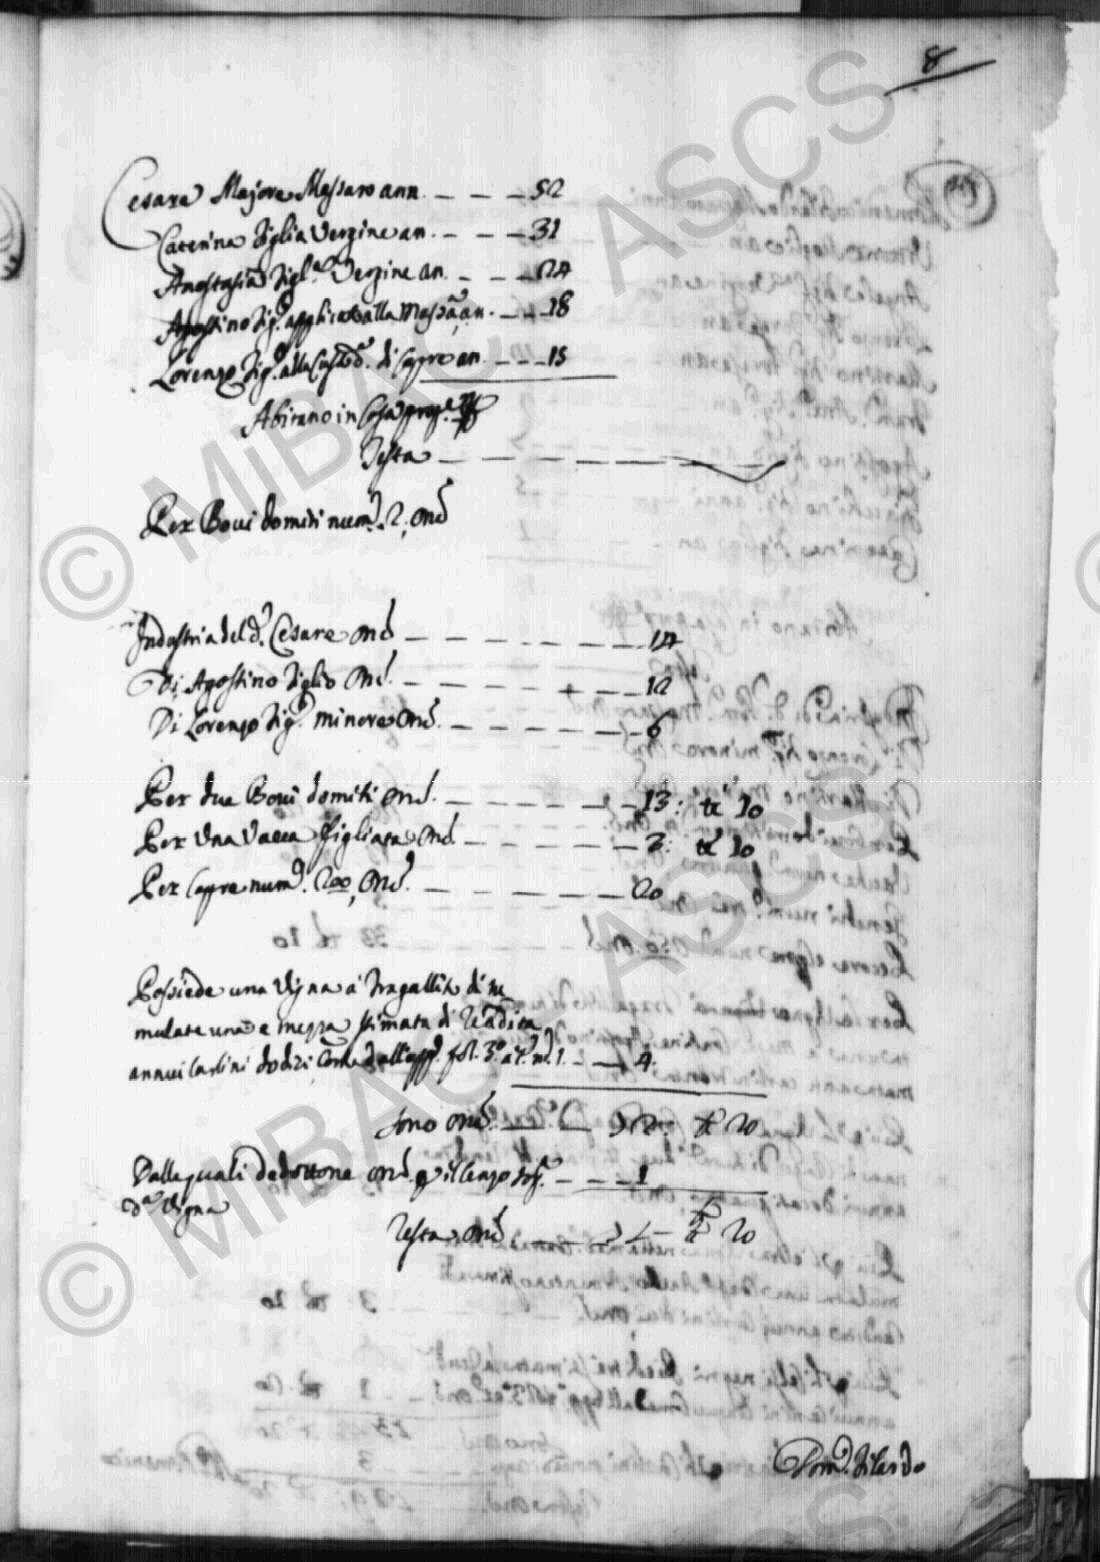 8
Cesare Majore Massaro ann. - - - 52
Caterina figlia Vergine an. - - - 31
Anastasia figl.a Vergine an. - - - 24
Agostino fig.o applicato alla Massa,a an. - - - 18
Lorenzo fig.o alla Custod.a di Capre an. - - - 15
Abitano in Casa prop.a
Testa - - - - - - -
Per Bovi domiti num.o 2, onc.
Industria del d.o Cesare onc. - - - - - - 14
Di Agostino figlio onc. - - - - - - 12
Di Lorenzo fig.o minore onc. - - - - - - 6
Per due Bovi domiti onc. - - - - - - 13: tt 10
Per una Vacca figliata onc. - - - - - - 3: tt 10
Per Capre num.o 200, onc. - - - - - - 20
Possiede una Vigna a Tragalliti di tu
mulate una e mezza stimata di rendita
annui Carlini dodici Come dall'app.o fol. 3.o a t.o n.o 1. - - 4:
Sono onc. - - - 72: tt 20
Dalle quali dedottone onc. p il Censo sop.a - - - 1
d.a Vigna
Resta onc. - - - 71 - tt 20
Dom.co Filardo
© MiBAC - ASCS
© MiBAC - ASCS